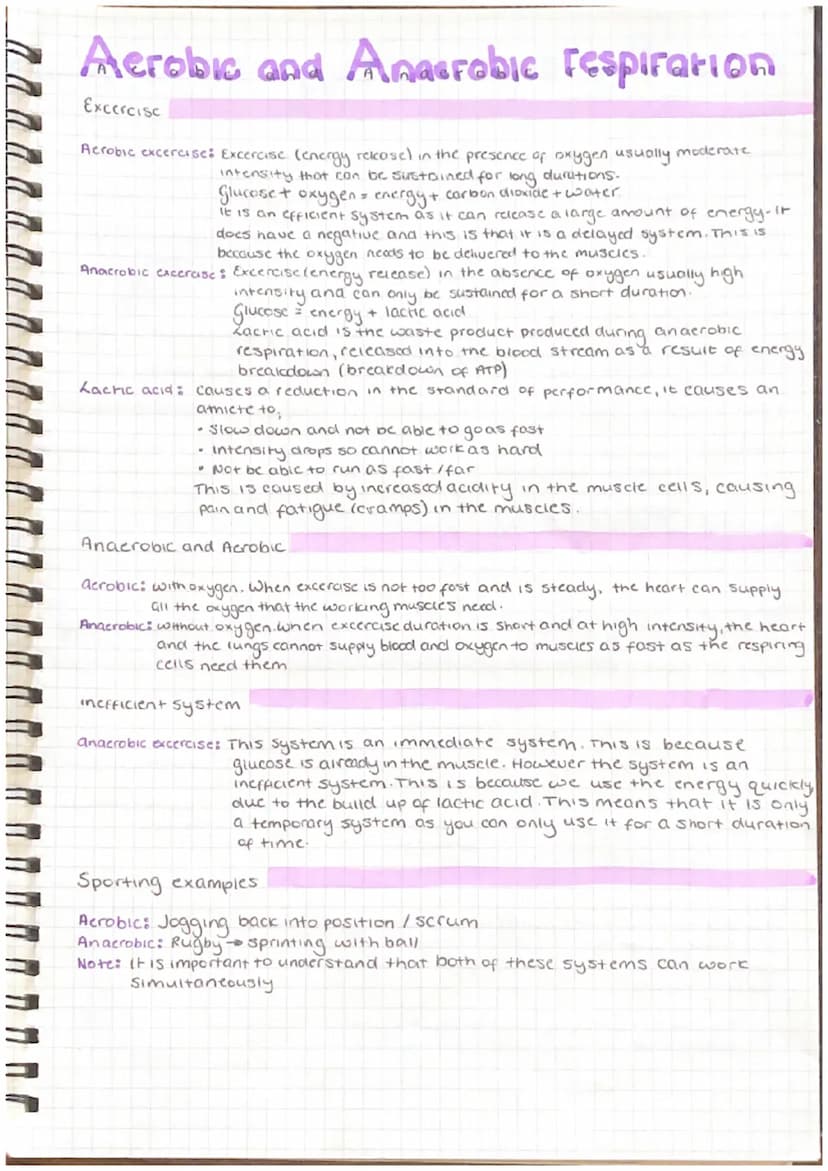 Aerobic and Anaerobic respiration
Excercise
Aerobic excercise: Excercise (energy release) in the presence of oxygen usually moderate
intensity that can be sustained for long durations.
Glucose + oxygen = energy + carbon dioxide + water.
It is an efficient system as it can release a large amount of energy - It
does have a negative and this is that it is a delayed system. This is
because the oxygen needs to be delivered to the muscles.
Anaerobic excercise: Excercise (energy release) in the absence of oxygen usually high
intensity and can only be sustained for a short duration.
Glucose = energy + lactic acid
Lactic acid is the waste product produced during anaerobic
respiration, released into the blood stream as a result of energy
breakdown (breakdown of ATP)
Lactic acid: causes a reduction in the standard of performance, it causes an
athlete to,
• Slow down and not be able to go as fast
• Intensity drops so cannot work as hard
• Not be able to run as fast / far
This is caused by increased acidity in the muscle cells, causing
pain and fatigue (cramps) in the muscles.
Anaerobic and Aerobic
aerobic: with oxygen. When excercise is not too fast and is steady, the heart can supply
all the oxygen that the working muscles need.
Anaerobic: without oxygen. When excercise duration is short and at high intensity, the heart
and the lungs cannot supply blood and oxygen to muscles as fast as the respiring
cells need them
inefficient system
anaerobic excercise: This system is an immediate system. This is because
glucose is already in the muscle. However the system is an
inefficient system. This is because we use the energy quickly
due to the build up of lactic acid. This means that it is only
a temporary system as you can only use it for a short duration
of time.
Sporting examples
Aerobic: Jogging back into position / scrum
Anaerobic: Rugby → sprinting with ball
Note: It is important to understand that both of these systems can work
simultaneously